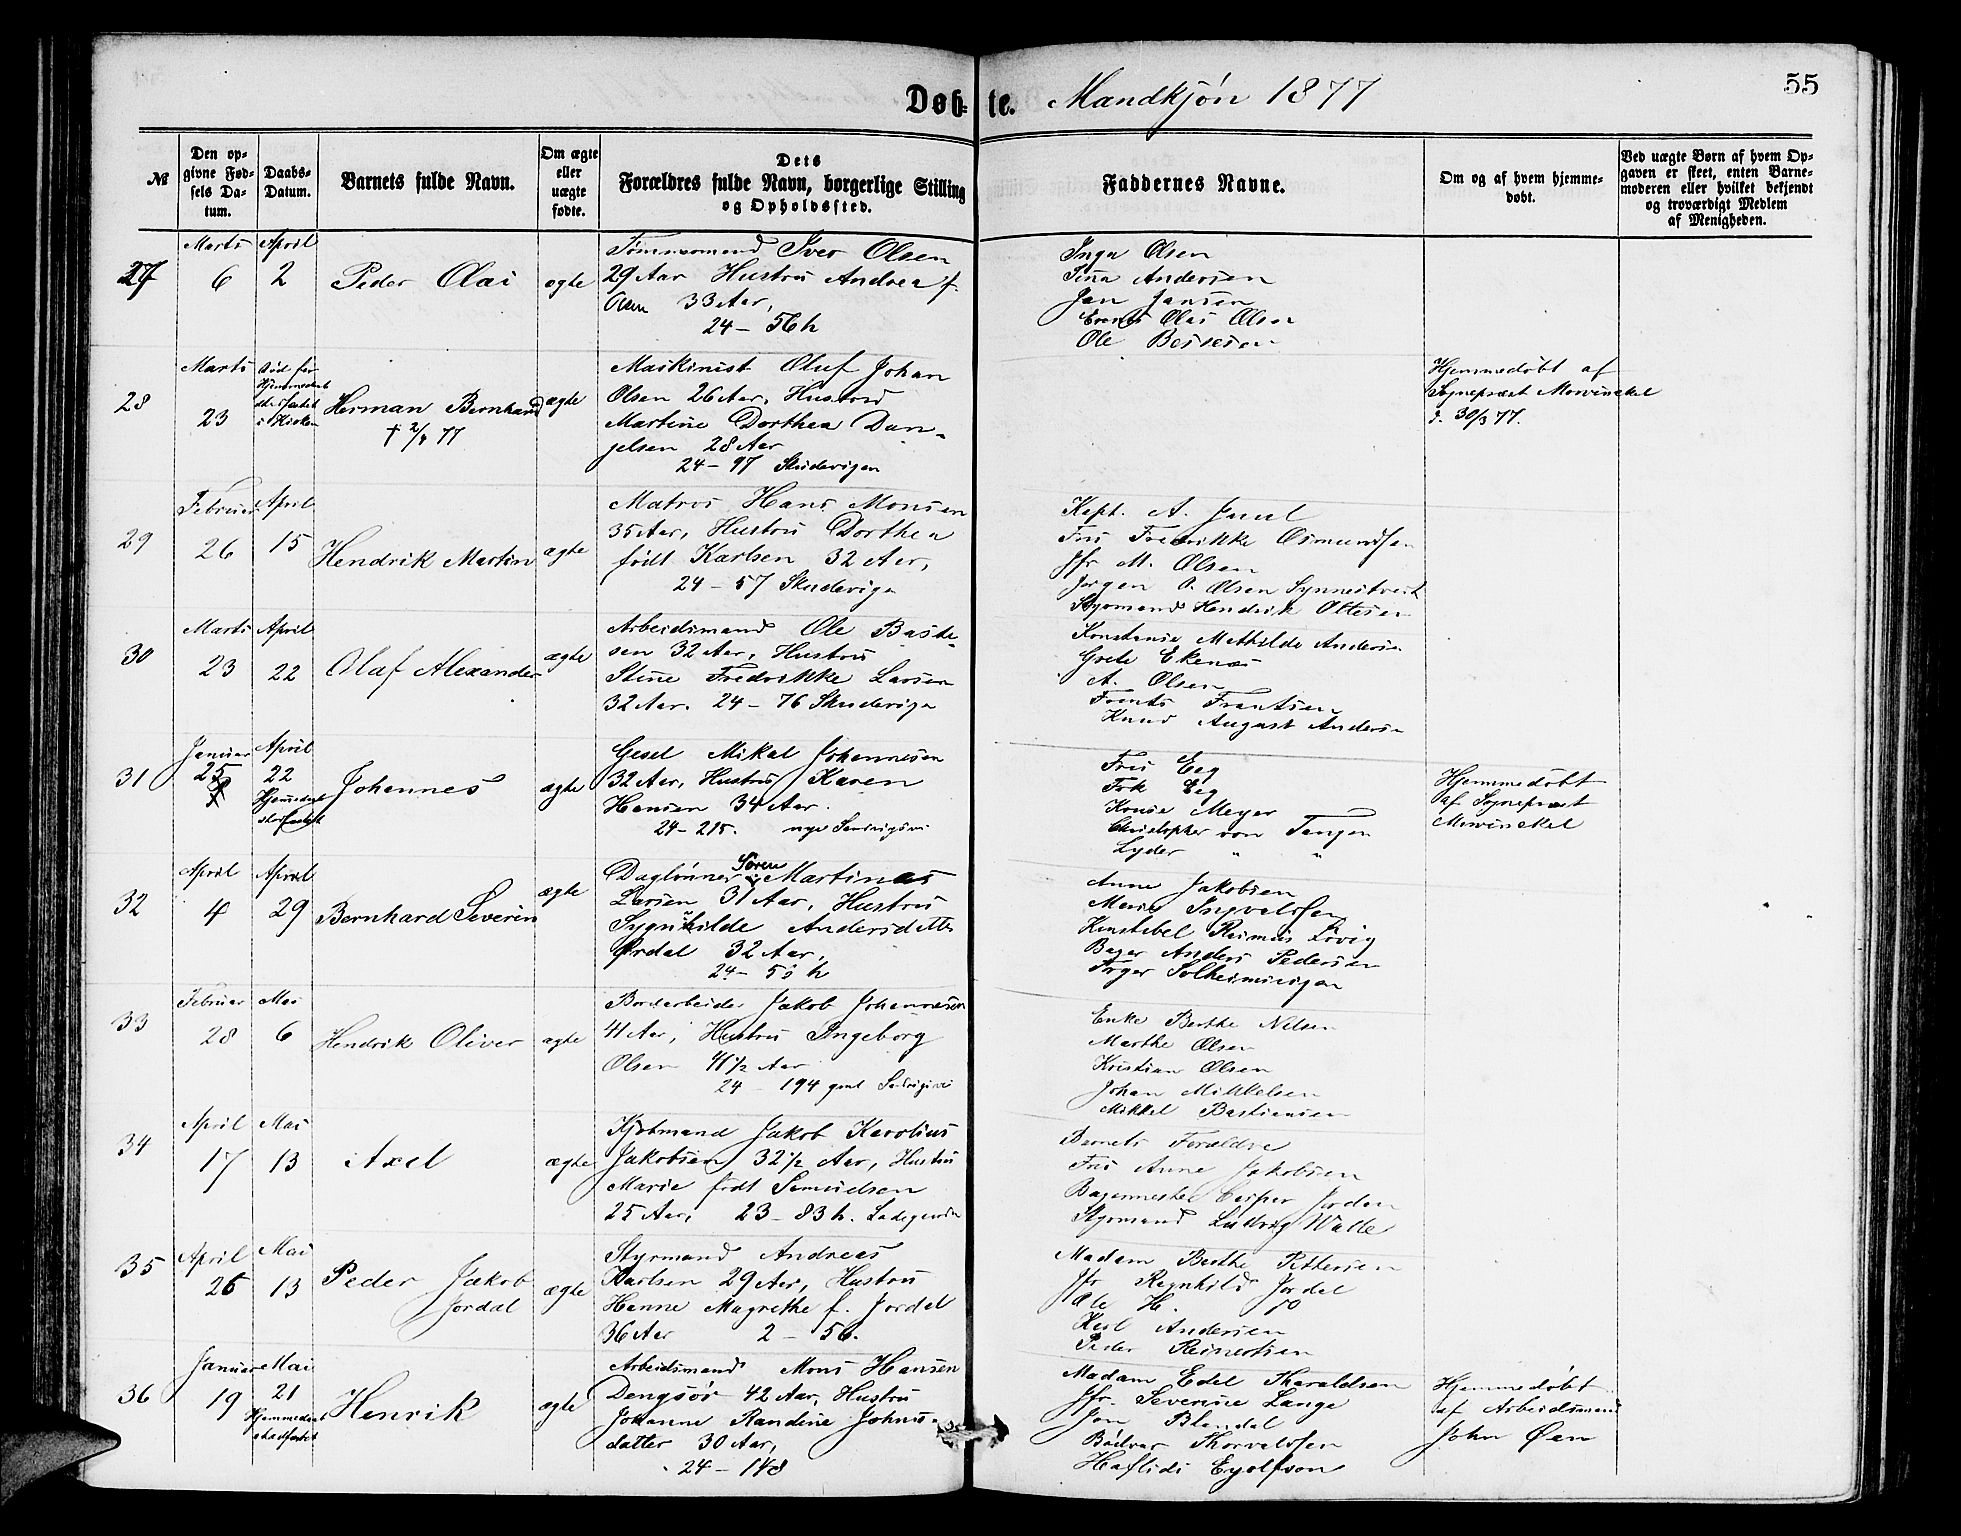 Døb- te. Mandkjøn 1877
55
№
Den op-
givne Fød-
sels Da-
tum.
Daabs-
Datum.
Barnets fulde Navn.
Om ægte
eller
uægte
fødte.
Dets
Forældres fulde Navn, borgerlige Stilling
og Opholdssted.
Faddernes Navne.
Om og af hvem hjemme-
døbt.
Ved uægte Børn af hvem Op-
gaven er skeet, enten Barne-
moderen eller hvilket bekjendt
og troværdigt Medlem
af Menigheden.
27
Marts
6
April
2
Peder Olai
ægte
Tømmermand Iver Olsen
29 Aar Hustru Andrea f.
Olsen 33 Aar,
24 – 56 h
Inga Olsen
Sina Andersen
Jan Jansen
Olai Olsen
Ole Bessesen
28
Marts
23
Død før
i Kirken
Herman Bernhard
† 2/4 77
ægte
Maskinist Oluf Johan
Olsen 26 Aar, Hustru
Martine Dorthea Dan-
jelsen 28 Aar
24 – 97 Skudevigen
Hjemmedøbt af
Sognepræst Mowinckel
d. 30/3 77.
29
Februar
26
April
15
Hendrik Martin
ægte
Matros Hans Monsen
35 Aar, Hustru Dorthea
født Karlsen 32 Aar,
24 – 57 Skudevigen
Kapt. A. Juul
Fru Fredrikke Osmundsen
Jfr M. Olsen
Jørgen O. Olsen Synnestvedt
Styrmand Hendrik Ottesen
30
Marts
23
April
22
Olaf Alexander
ægte
Arbeidsmand Ole Baste-
sen 32 Aar, Hustru
Stine Fredrikke Larsen
32 Aar. 24 – 76 Skudevigen
Konstanse Mathilde Andersen
Grete Ekenæs
A. Olsen
Frants Frantsen
Knud August Andersen
31
Januar
25
April
22
Hjemmedøbt
stadfæstet
Johannes
ægte
Gesel Mikal Johannesen
32 Aar, Hustru Karen
Hansen 34 Aar.
24 – 215. nye Sandvigsvei
Fru Eeg
Frk Eeg
Meyer
Christopher von Tangen
Lyder " "
Hjemmedøbt
af Sognepræst
Mowinckel
32
April
4
April
29
Bernhard Severin
ægte
Daglønner Søren Martinas
Larsen 31 Aar, Hustru
Sygnhilde Andersdatter
Ørdal 32 Aar,
24 – 55 h
Anne Jakobsen
Marie Ingvalsen
Konstabel Rasmus Løvig
Bager Anders Pedersen
Solheimsvigen
33
Februar
28
Mai
6
Hendrik Oliver
ægte
Bordarbeider Jakob Johannesen
41 Aar, Hustru Ingeborg
Olsen 41 1/2 Aar
24 – 194 gml Sandvigsvei
Enke Berthe Nelsen
Marthe Olsen
Kristian Olsen
Johan Mikkelsen
Mikkel Bastiansen
34
April
17
Mai
13
Axel
ægte
Kjøtmand Jakob Karolius
Jakobsen 32 1/2 Aar, Hustru
Marie født Samuelsen
25 Aar, 23 – 83 h. Ladegaarden
Barnets Forældre
Fru Anne Jakobsen
Bagermester Casper Jordan
Styrmand Ludvig Walle
35
April
26
Mai
13
Peder Jakob
Jordal
ægte
Styrmand Andreas
Karlsen 29 Aar, Hustru
Hanne Magrethe f. Jordal
36 Aar 2 – 56.
Madam Berthe Pettersen
Jfr Ragnhild Jordal
Ole H. do
Karl Andersen
Peder Reinertsen
36
Januar
19
Mai
21
Hjemmedøbt
stadfæstet
Henrik
ægte
Arbeidsmand Mons Hansen
Dengsør 42 Aar, Hustru
Johanne Randine Johns-
datter 30 Aar,
24 – 148
Madam Edel Haraldsen
Jfr. Severine Lange
Jon Blandal
Bødvar Thorvalsen
Haflidi Eyolfson
Hjemmedøbt
af Arbeidsmand
John Øen